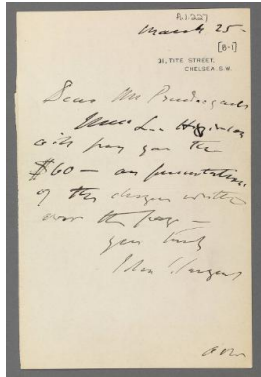 A.1.227
March 25-
[B-1]
31, TITE STREET,
CHELSEA. S.W.
Dear Mr Prendergast
Lee Higginson
will pay you the
$60 — on presentation
of the cheque written
over the page —
yours truly
John S Sargent